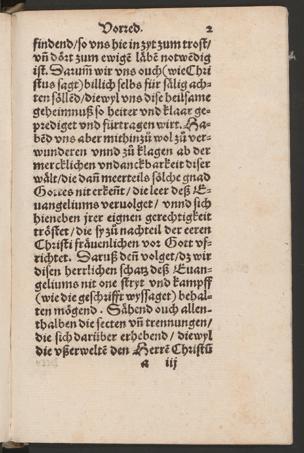 Vorred. 2
findend/so vns hie in zyt zum trost/
vñ dört zum ewigē läbē notwēdig
ist. Darum̃ wir vns ouch (wie Chri
stus sagt) billich selbs für sälig ach-
ten söllēd/diewyl vns dise heilsame
geheimnuß so heiter vnd klaar ge-
prediget vnd fürtragen wirt. Ha-
bēd vns aber mithinzů wol zů ver-
wunderen vnnd zů klagen ab der
mercklichen vndanckbarkeit diser
wält/die dañ meerteils sölche gnad
Gottes nit erkeñt/die leer deß E-
uangeliums veruolget/ vnnd sich
hieneben jrer eignen gerechtigkeit
tröstet/ die sy zů nachteil der eeren
Christi fräuenlichen vor Gott vf-
richtet. Daruß deñ volget/dz wir
disen herrlichen schatz deß Euan-
geliums nit one stryt vnd kampff
(wie die geschrifft wyssaget) behal-
ten mögend. Sähend ouch allen-
thalben die secten vñ trennungen/
die sich darüber erhebend/ diewyl
die vßerweltē den Herrē Christū
a iij